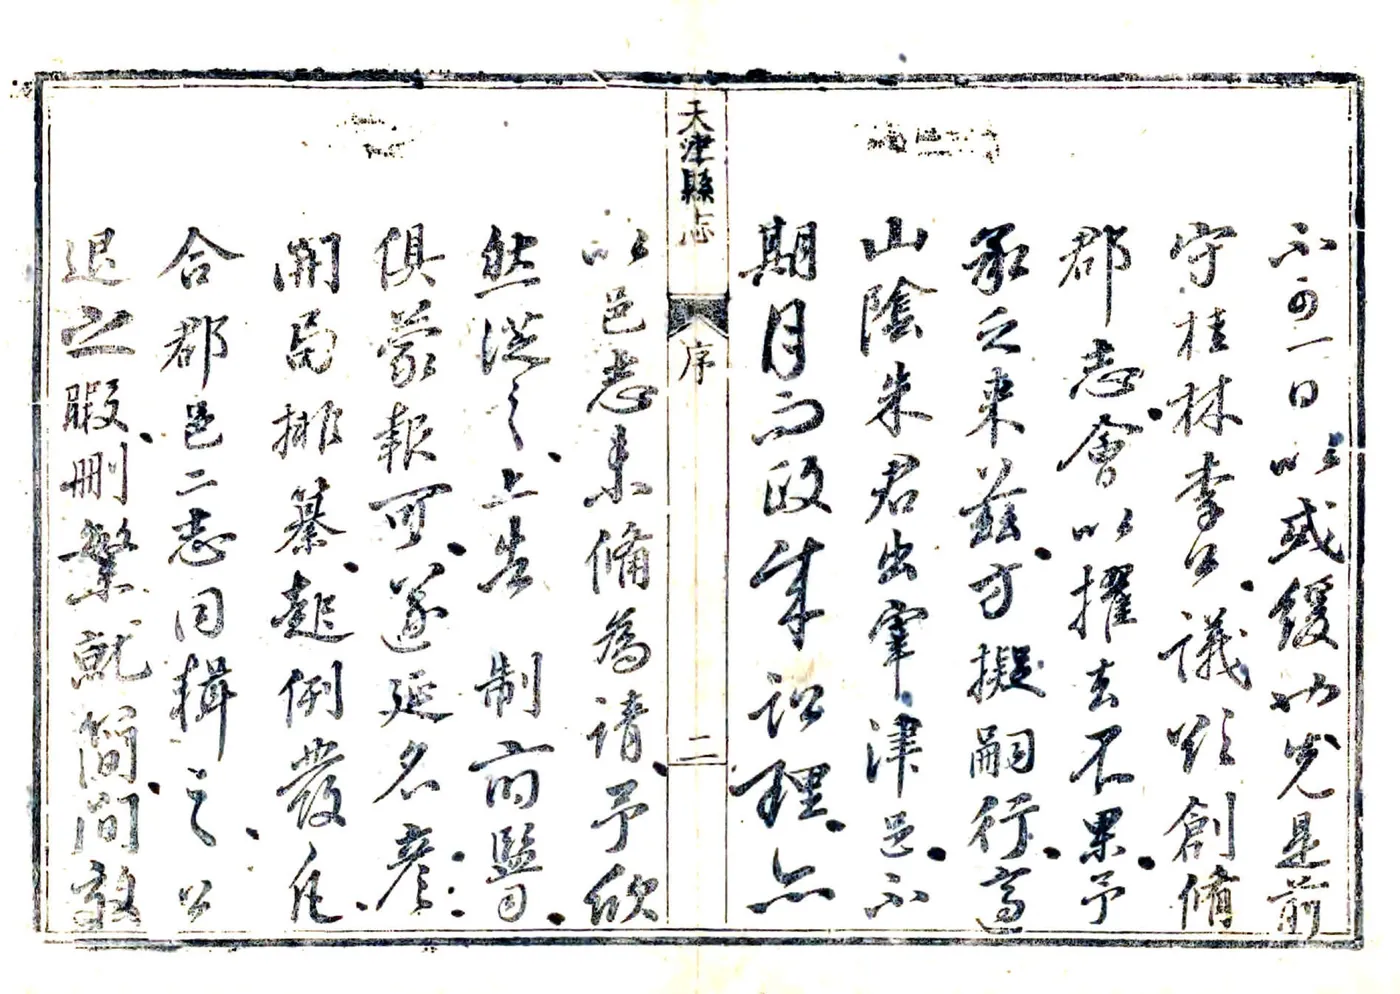 不可一日以或緩也先是前
守桂林李公議欲創脩
郡志會以擢去不果予
承乏來茲方擬嗣行適
山陰朱君出宰津邑不
期月而政成訟理亦
天津縣志
序
二
以邑志未脩為請予欣
然從之上告 制府鹽司
俱蒙報可遂延名彥
開局排纂起例發凡
合郡邑二志同輯之公
退之暇刪繁就簡間效